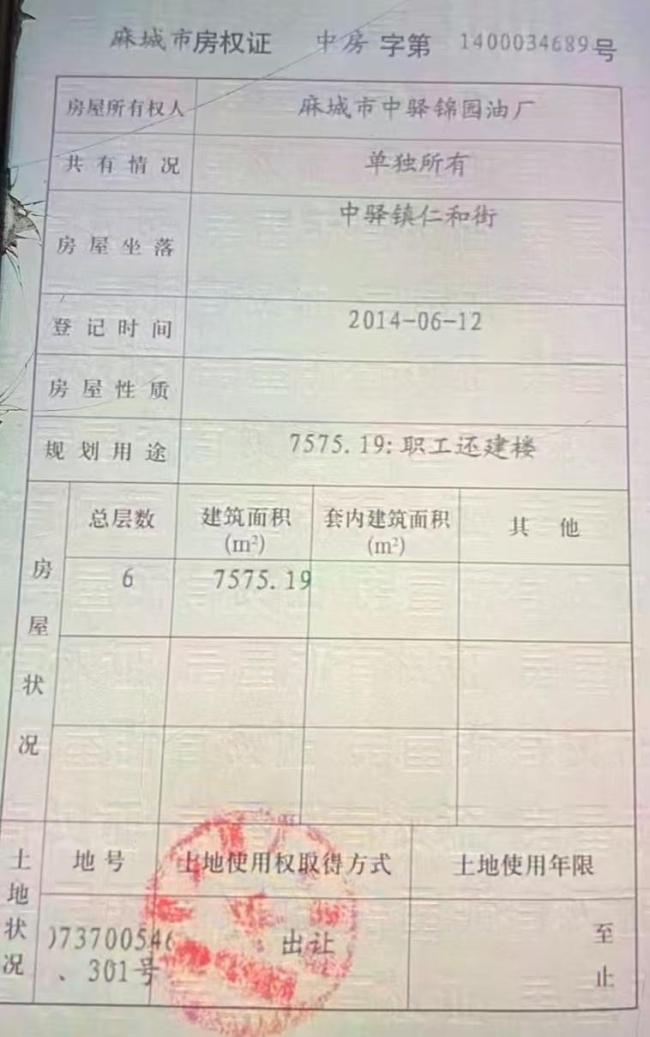 麻城市房权证 中房 字第 1400034689号
房屋所有权人 麻城市中驿锦园油厂
共有情况 单独所有
房屋坐落 中驿镇仁和街
登记时间 2014-06-12
房屋性质
规划用途 7575.19:职工还建楼
房屋状况
总层数 建筑面积(m²) 套内建筑面积(m²) 其他
6 7575.19
土地状况
地号 土地使用权取得方式 土地使用年限
073700546、301号 出让 至止